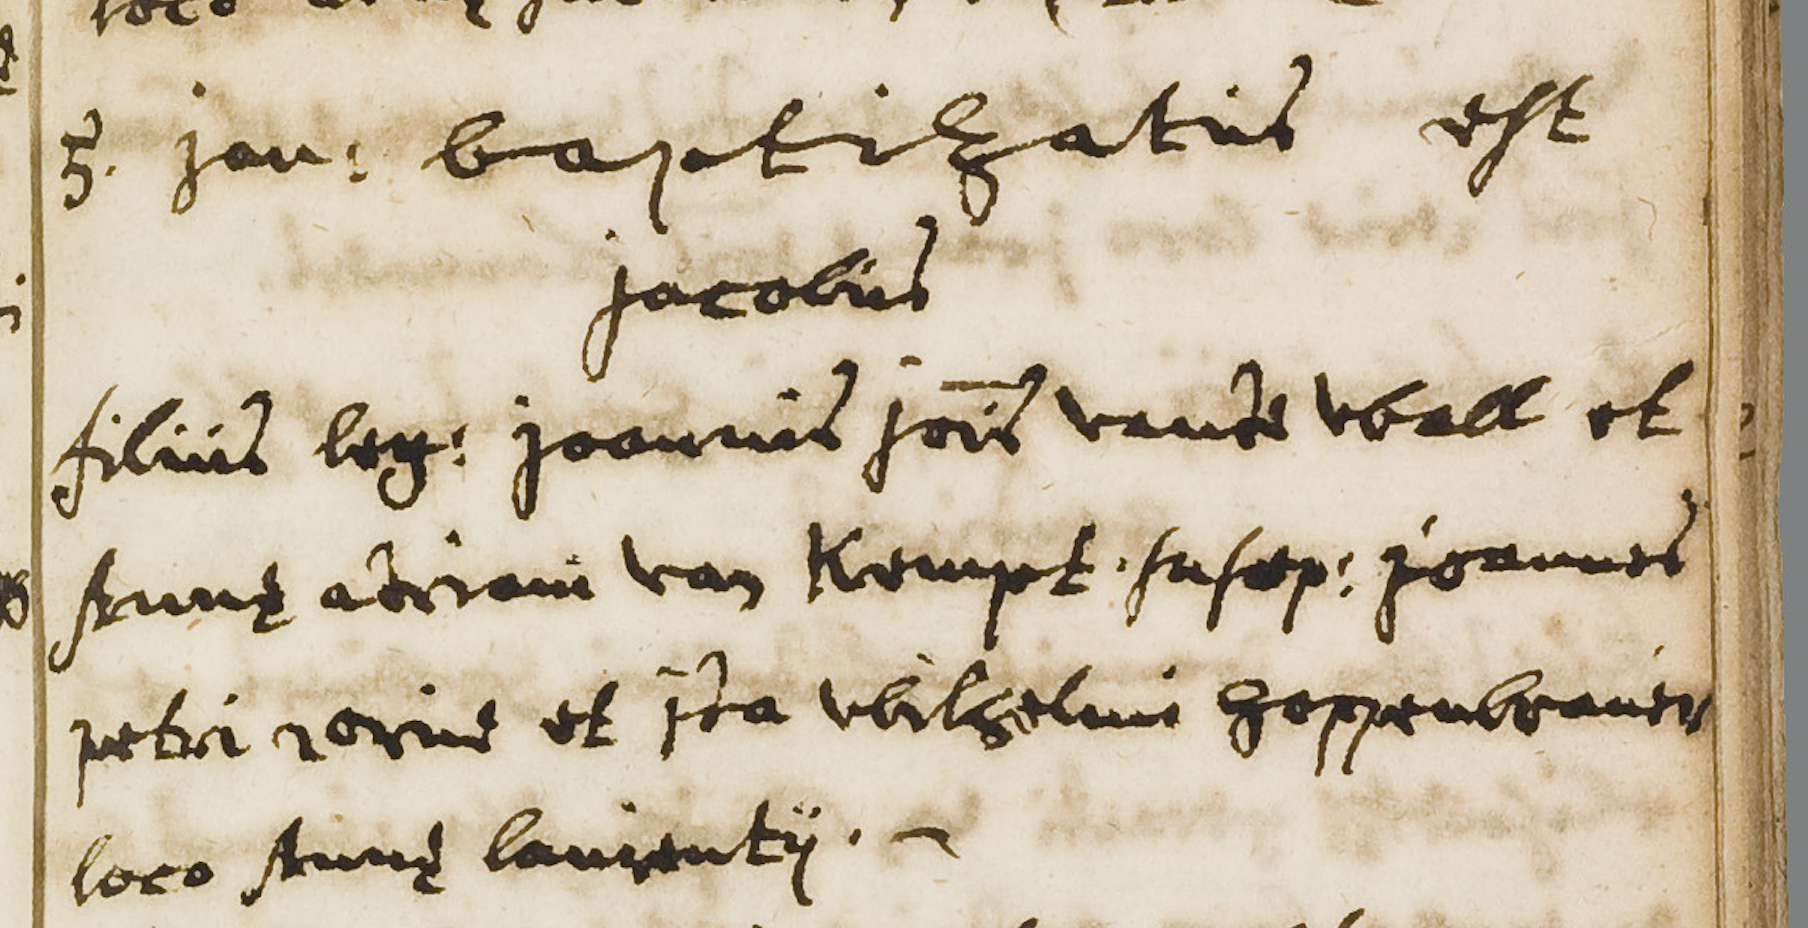 5. jan: baptizatus est
jacobus
filius leg: joannis jois vande wall et
Annę adriani van Kempt. susep: joannes
petri et jda wilhelmi hoppenbrauer
loco Annę laurentij.